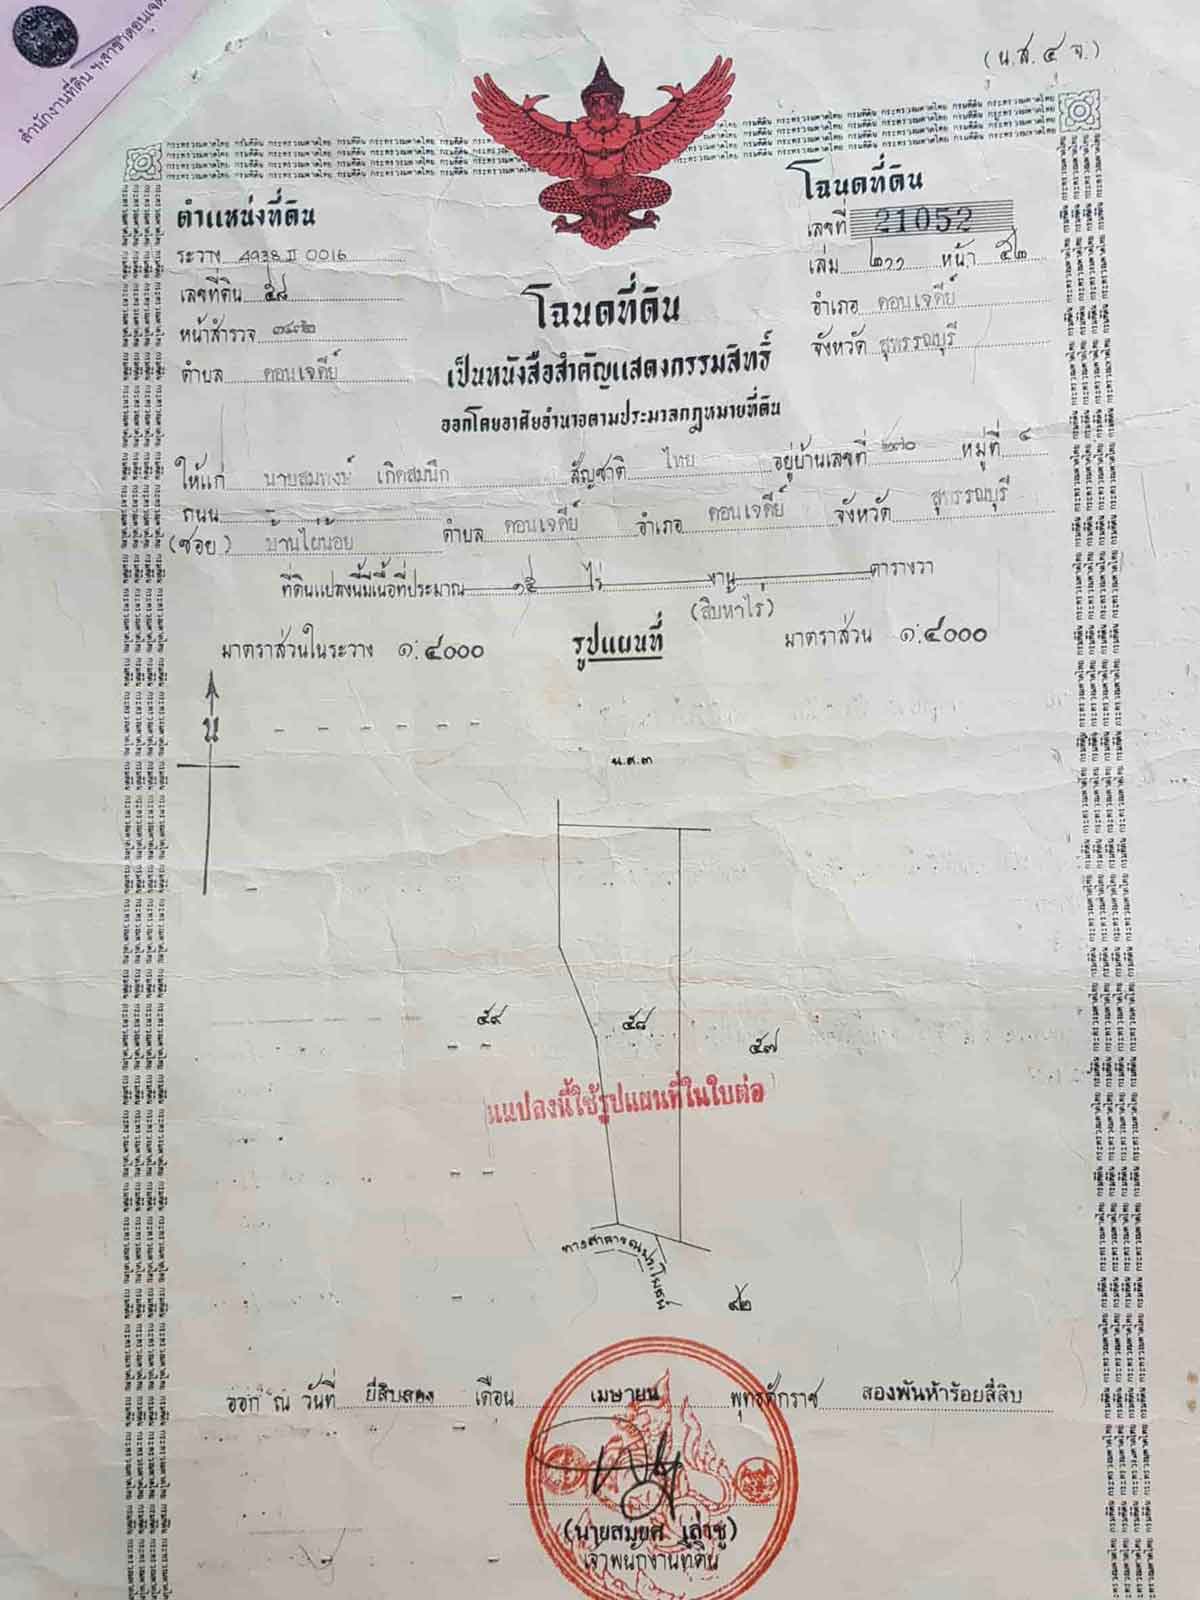 สำนักงานที่ดิน
(น.ส. ๔ จ.)
ตำแหน่งที่ดิน
ระวาง 4938 II 0016
เลขที่ดิน ๕๘
หน้าสำรวจ
ตำบล ดอนเจดีย์
โฉนดที่ดิน
เลขที่ 21052
เล่ม ๒๑๑ หน้า ๕๒
อำเภอ ดอนเจดีย์
จังหวัด สุพรรณบุรี
โฉนดที่ดิน
เป็นหนังสือสำคัญแสดงกรรมสิทธิ์
ออกโดยอาศัยอำนาจตามประมวลกฎหมายที่ดิน
ให้แก่ นายสมพงษ์ เกิดสมนึก สัญชาติ ไทย อยู่บ้านเลขที่ ๒๗๐ หมู่ที่ ๔
ถนน
(ซอย) บ้านไผ่น้อย ตำบล ดอนเจดีย์ อำเภอ ดอนเจดีย์ จังหวัด สุพรรณบุรี
ที่ดินแปลงนี้มีเนื้อที่ประมาณ ๑๕ ไร่ งาน ตารางวา
(สิบห้าไร่)
มาตราส่วนในระวาง ๑:๔๐๐๐ รูปแผนที่ มาตราส่วน ๑:๔๐๐๐
น
น.ส.๓
๕๙ ๕๘ ๕๗
นแปลงนี้ใช้รูปแผนที่ในใบต่อ
ทางสาธารณประโยชน์
๙๒
ออก ณ วันที่ ยี่สิบสอง เดือน เมษายน พุทธศักราช สองพันห้าร้อยสี่สิบ
(นายสมยศ เล่าซู)
เจ้าพนักงานที่ดิน